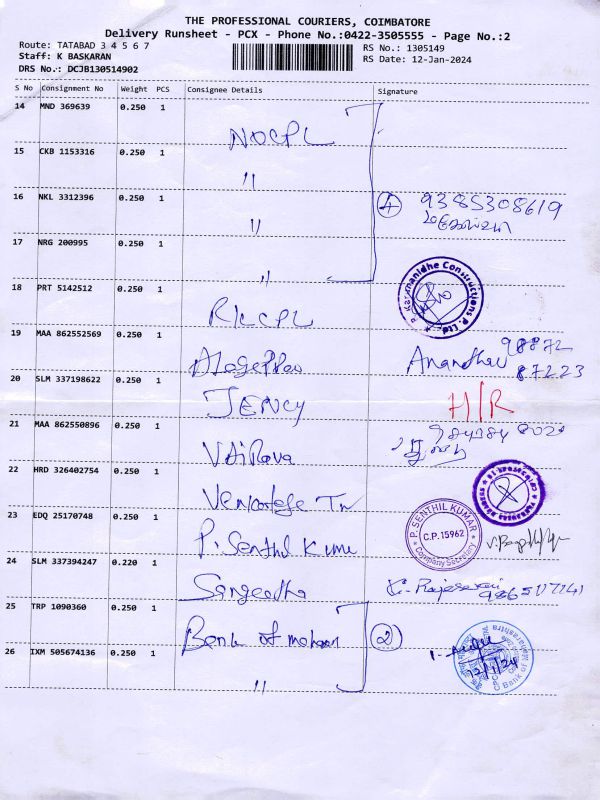 THE PROFESSIONAL COURIERS, COIMBATORE
Delivery Runsheet - PCX - Phone No.:0422-3505555 - Page No.:2
Route: TATABAD 3 4 5 6 7
RS No.: 1305149
Staff: K BASKARAN
RS Date: 12-Jan-2024
DRS No.: DCJB130514902
S No Consignment No Weight PCS Consignee Details Signature
14 MND 369639 0.250 1 NOCPL
15 CKB 1153316 0.250 1 〃
16 NKL 3312396 0.250 1 〃 4 9385308619
17 NRG 200995 0.250 1 〃
18 PRT 5142512 0.250 1 RKCPL Constructions P. Ltd.
19 MAA 862552569 0.250 1 Anandhu 98872 87223
20 SLM 337198622 0.250 1 JENCY H/R
21 MAA 862550896 0.250 1 VAiRava
22 HRD 326402754 0.250 1
23 EDQ 25170748 0.250 1 P. Senthil Kume P. SENTHIL KUMAR C.P. 15962 Company Secretary
24 SLM 337394247 0.220 1 Sangeedha
25 TRP 1090360 0.250 1 Bank of 2
26 IXM 505674136 0.250 1 〃 12/1/24 Bank of Maharashtra